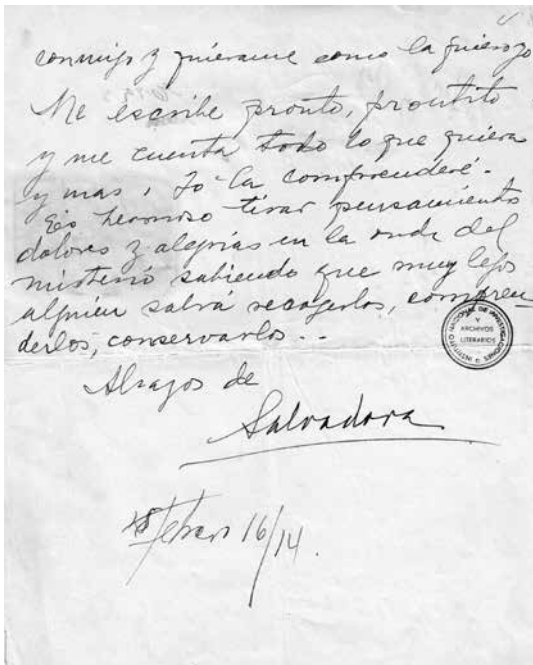 conmigo y quiérame como la quiero yo
Me escribe pronto, prontito
y me cuenta todo lo que quiera
y mas, Yo la comprenderé.
Es hermoso tirar pensamientos
dolores y alegrías en la onda del
misterio sabiendo que muy lejos
alguien sabrá recogerlos, compren-
derlos, conservarlos...
INSTITUTO NACIONAL DE INVESTIGACIONES
Y
ARCHIVOS
LITERARIOS
Abrazos de
Salvadora
Febrero 16/14.